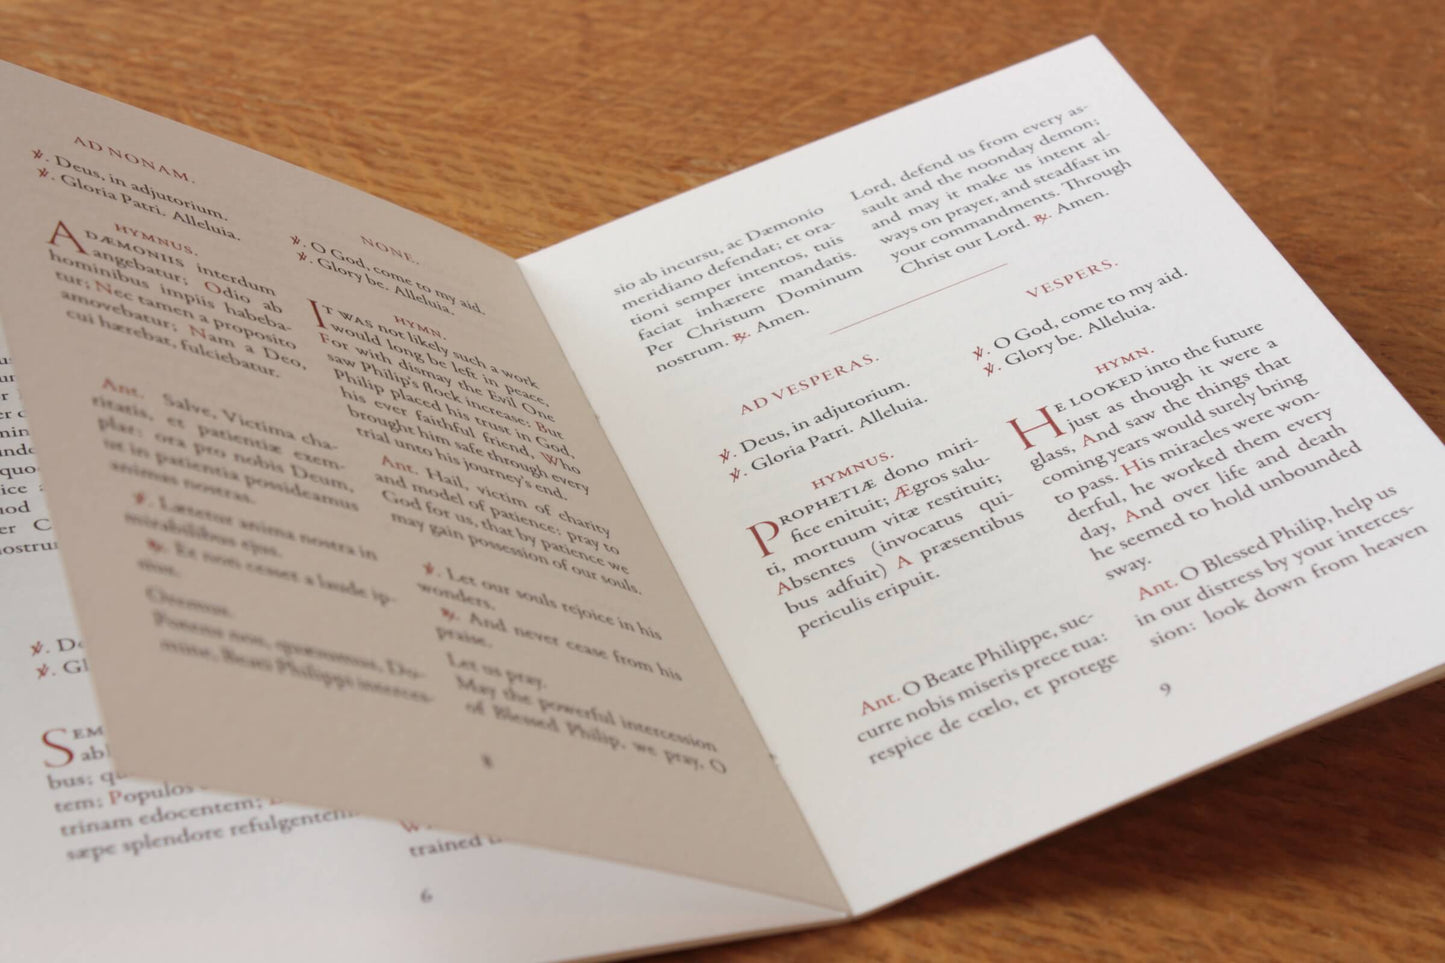 AD NONAM.
℣. Deus, in adjutorium.
℣. Gloria Patri. Alleluia.
HYMNUS.
A DÆMONIIS interdum
angebatur; Odio ab
hominibus impiis habeba-
tur; Nec tamen a proposito
amovebatur; Nam a Deo,
cui hærebat, fulciebatur.
Ant. Salve, Victima cha-
ritatis, et patientiæ exem-
plar: ora pro nobis Deum,
ut in patientia possideamus
animas nostras.
℣. Lætetur anima nostra in
mirabilibus ejus.
℟. Et non cesset a laude ip-
sius.
Oremus.
Potens nos, quæsumus, Do-
mine, Beati Philippi interces-
NONE.
℣. O God, come to my aid.
℣. Glory be. Alleluia.
HYMN.
IT WAS not likely such a work
would long be left in peace,
For with dismay the Evil One
saw Philip's flock increase: But
Philip placed his trust in God,
his ever faithful friend, Who
brought him safe through every
trial unto his journey's end.
Ant. Hail, victim of charity
and model of patience: pray to
God for us, that by patience we
may gain possession of our souls.
℣. Let our souls rejoice in his
wonders.
℟. And never cease from his
praise.
Let us pray.
May the powerful intercession
of Blessed Philip, we pray, O
8
sio ab incursu, ac Dæmonio
meridiano defendat; et ora-
tioni semper intentos, tuis
faciat inhærere mandatis.
Per Christum Dominum
nostrum. ℟. Amen.
Lord, defend us from every as-
sault and the noonday demon;
and may it make us intent al-
ways on prayer, and steadfast in
your commandments. Through
Christ our Lord. ℟. Amen.
AD VESPERAS.
℣. Deus, in adjutorium.
℣. Gloria Patri. Alleluia.
HYMNUS.
PROPHETIÆ dono miri-
fice enituit; Ægros salu-
ti, mortuum vitæ restituit;
Absentes (invocatus qui-
bus adfuit) A præsentibus
periculis eripuit.
Ant. O Beate Philippe, suc-
curre nobis miseris prece tua:
respice de cœlo, et protege
VESPERS.
℣. O God, come to my aid.
℣. Glory be. Alleluia.
HYMN.
HE LOOKED into the future
just as though it were a
glass, And saw the things that
coming years would surely bring
to pass. His miracles were won-
derful, he worked them every
day, And over life and death
he seemed to hold unbounded
sway.
Ant. O Blessed Philip, help us
in our distress by your interces-
sion: look down from heaven
9
SEM
bus;
tem; Populos
trinam edocentem;
sæpe splendore refulgentem
trained
6